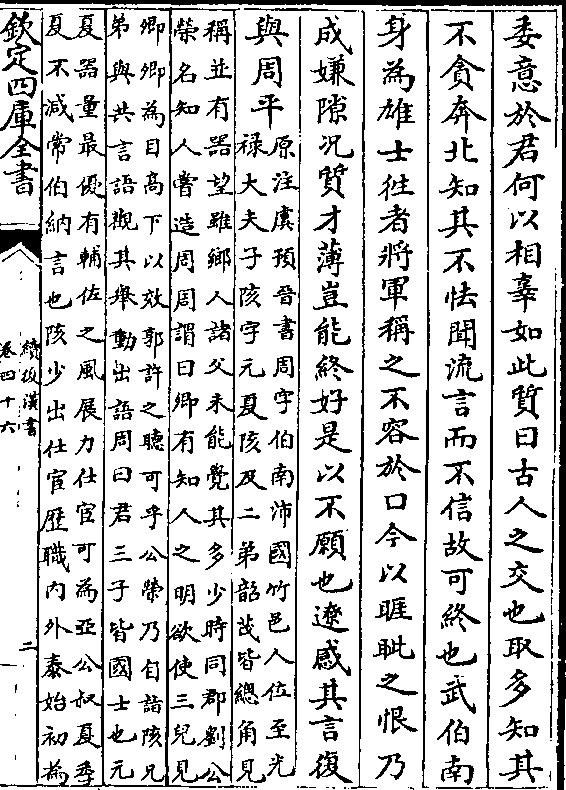 委意於君何以相辜如此質曰古人之交也取多知其
不貪奔北知其不怯聞流言而不信故可終也武伯南
身為雄士徃者將軍稱之不容於口今以睚眦之恨乃
成嫌隙况質才薄豈能終好是以不願也遼感其言復
與周平
原注虞預晉書周字伯南沛國竹邑人位至光
禄大夫子陔字元夏陔及二弟韶茂皆總角見
稱並有器望雖鄉人諸父未能覺其多少時同郡劉公
榮名知人嘗造周周謂曰卿有知人之明欲使三兒見
卿卿為目高下以效郭許之聽可乎公榮乃自詣陔兄
弟與共言語觀其舉動出語周曰君三子皆國士也元
夏器量最優有輔佐之風展力仕宦可為亞公叔夏季
夏不減常伯納言也陔少出仕宦歷職内外泰始初為
欽定四庫全書
續後漢書
卷四十六
二